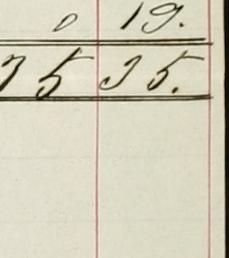 0 19.
75 35.